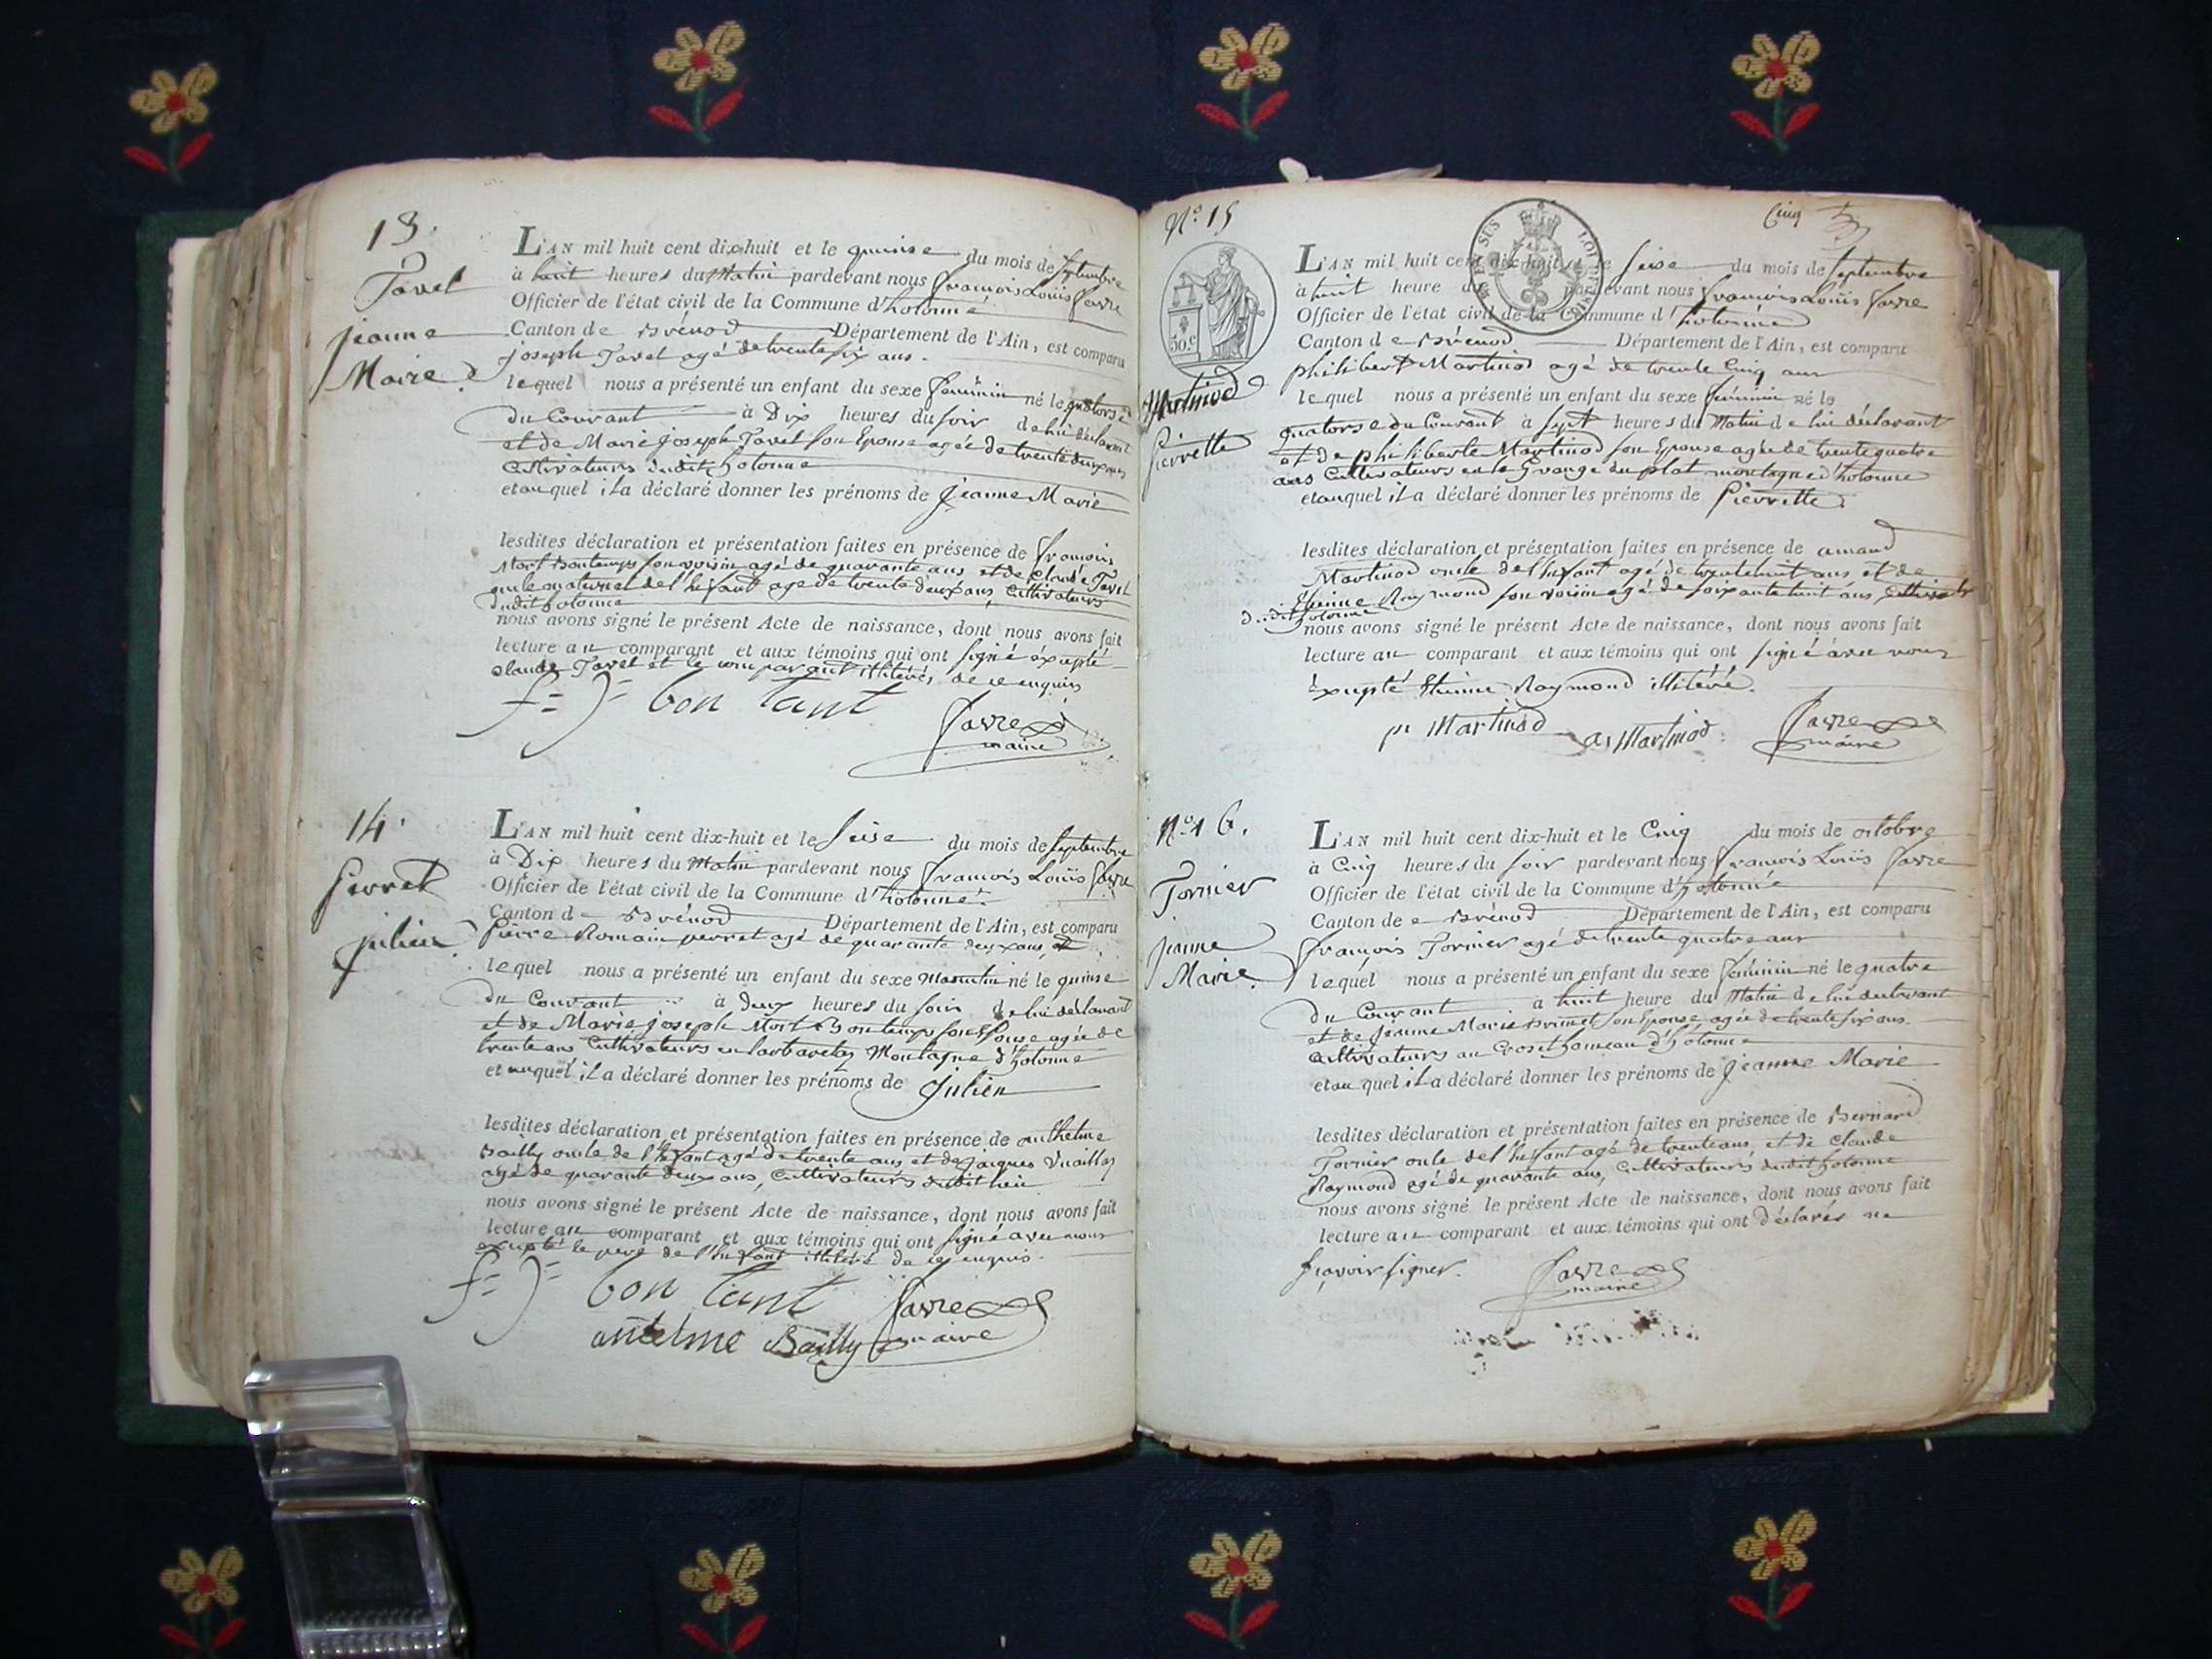 13.
Tavel
jeanne
Marie.
L'AN mil huit cent dix-huit et le quinse du mois de septembre
à huit heures du Matin pardevant nous françois Louïs favre
Officier de l'état civil de la Commune d'hotonne
Canton de Brénod Département de l'Ain, est comparu
joseph Tavel agé de trente six ans.
lequel nous a présenté un enfant du sexe féminin né le quatorse
du Courant à Dix heures du soir de lui déclarant
et de Marie joseph Tavel son Epouse agée de trente deux ans
Cultivateurs dudit hotonne
et auquel il a déclaré donner les prénoms de Jeanne Marie
lesdites déclaration et présentation faites en présence de françois
Mort Bontemps son voisin agé de quarante ans et de Claude Tavel
oncle maternel de l'Enfant agé de trente deux ans, Cultivateurs
dudit hotonne
nous avons signé le présent Acte de naissance, dont nous avons fait
lecture au comparant et aux témoins qui ont signé éxcepté
Claude Tavel et le comparant illitérés, de ce enquis
f= J= bon tant
favre
maire
14.
Perret
julien.
L'AN mil huit cent dix-huit et le seise du mois de septembre
à Dix heures du Matin pardevant nous françois Louïs favre
Officier de l'état civil de la Commune d'hotonne.
Canton de Brénod Département de l'Ain, est comparu
Pierre Romain perret agé de quarante deux ans,
lequel nous a présenté un enfant du sexe Masculin né le quinse
du Courant à deux heures du soir de lui déclarant
et de Marie joseph Mort Bontemps son Epouse agée de
trente ans Cultivateurs en Montagne d'hotonne
et auquel il a déclaré donner les prénoms de Julien
lesdites déclaration et présentation faites en présence de anthelme
Bailly oncle de l'Enfant agé de trente ans et de jacques
agé de quarante deux ans, Cultivateurs dudit lieu
nous avons signé le présent Acte de naissance, dont nous avons fait
lecture au comparant et aux témoins qui ont signé avec nous
excepté le pere de l'Enfant illitéré de ce enquis.
f= J= bon tant
favre
antelme Bailly
maire
N.º 15
Cinq
50.c
Martinod
Pierrette
L'AN mil huit cent dix-huit et le seise du mois de septembre
à huit heure du pardevant nous françois Louïs favre
Officier de l'état civil de la Commune d'hotonne
Canton de Brénod Département de l'Ain, est comparu
philibert Martinod agé de trente Cinq ans
lequel nous a présenté un enfant du sexe féminin né le
quatorse du Courant à sept heures du Matin de lui déclarant
et de philiberte Martinod son Epouse agée de trente quatre
ans Cultivateurs en la Grange du plat montagne d'hotonne
et auquel il a déclaré donner les prénoms de Pierrette
lesdites déclaration et présentation faites en présence de amand
Martinod oncle de l'Enfant agé de trente huit ans et de
Etienne Raymond son voisin agé de soixante huit ans,
dudit hotonne
nous avons signé le présent Acte de naissance, dont nous avons fait
lecture au comparant et aux témoins qui ont signé avec nous
éxcepté Etienne Raymond illitéré.
pi Martinod
a, Martinod
favre
maire
N.º 16.
Tornier
jeanne
Marie.
L'AN mil huit cent dix-huit et le Cinq du mois de octobre
à Cinq heures du soir pardevant nous françois Louïs favre
Officier de l'état civil de la Commune d'hotonne
Canton de Brénod Département de l'Ain, est comparu
françois Tornier agé de trente quatre ans
lequel nous a présenté un enfant du sexe féminin né le quatre
du Courant à huit heure du Matin de lui déclarant
et de Jeanne Marie Brunet son Epouse agée de trente six ans
Cultivateurs au Croset hameau d'hotonne
et auquel il a déclaré donner les prénoms de Jeanne Marie
lesdites déclaration et présentation faites en présence de Bernard
Tornier oncle de l'Enfant agé de trente ans, et de Claude
Raymond agé de quarante ans, Cultivateurs dudit hotonne
nous avons signé le présent Acte de naissance, dont nous avons fait
lecture au comparant et aux témoins qui ont déclarés ne
sçavoir signer.
favre
maire